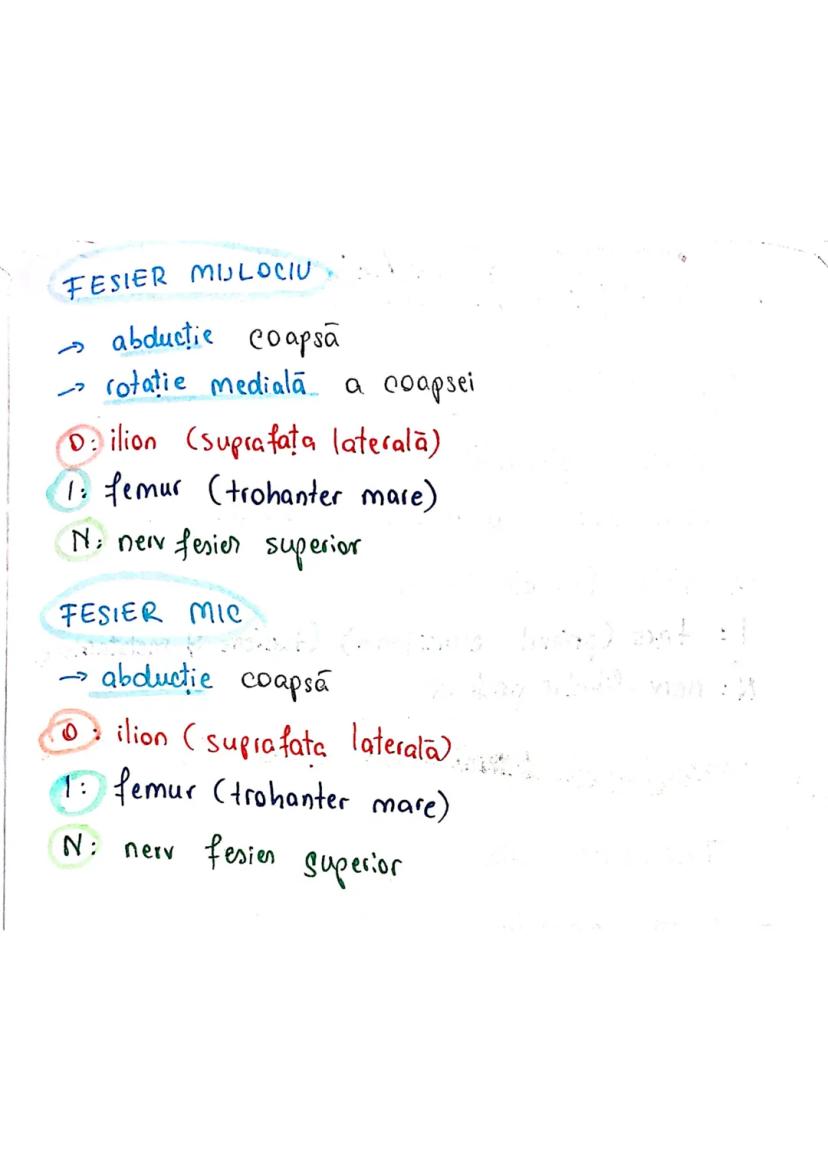 FESIER MIJLOCIU
→ abducție coapsă
→ rotație medială a coapsei
O: ilion (suprafața laterală)
I: femur (trohanter mare)
N: nerv fesier superior
FESIER MIC
→ abducție coapsă
O: ilion (suprafața laterală)
I: femur (trohanter mare)
N: nerv fesier superior